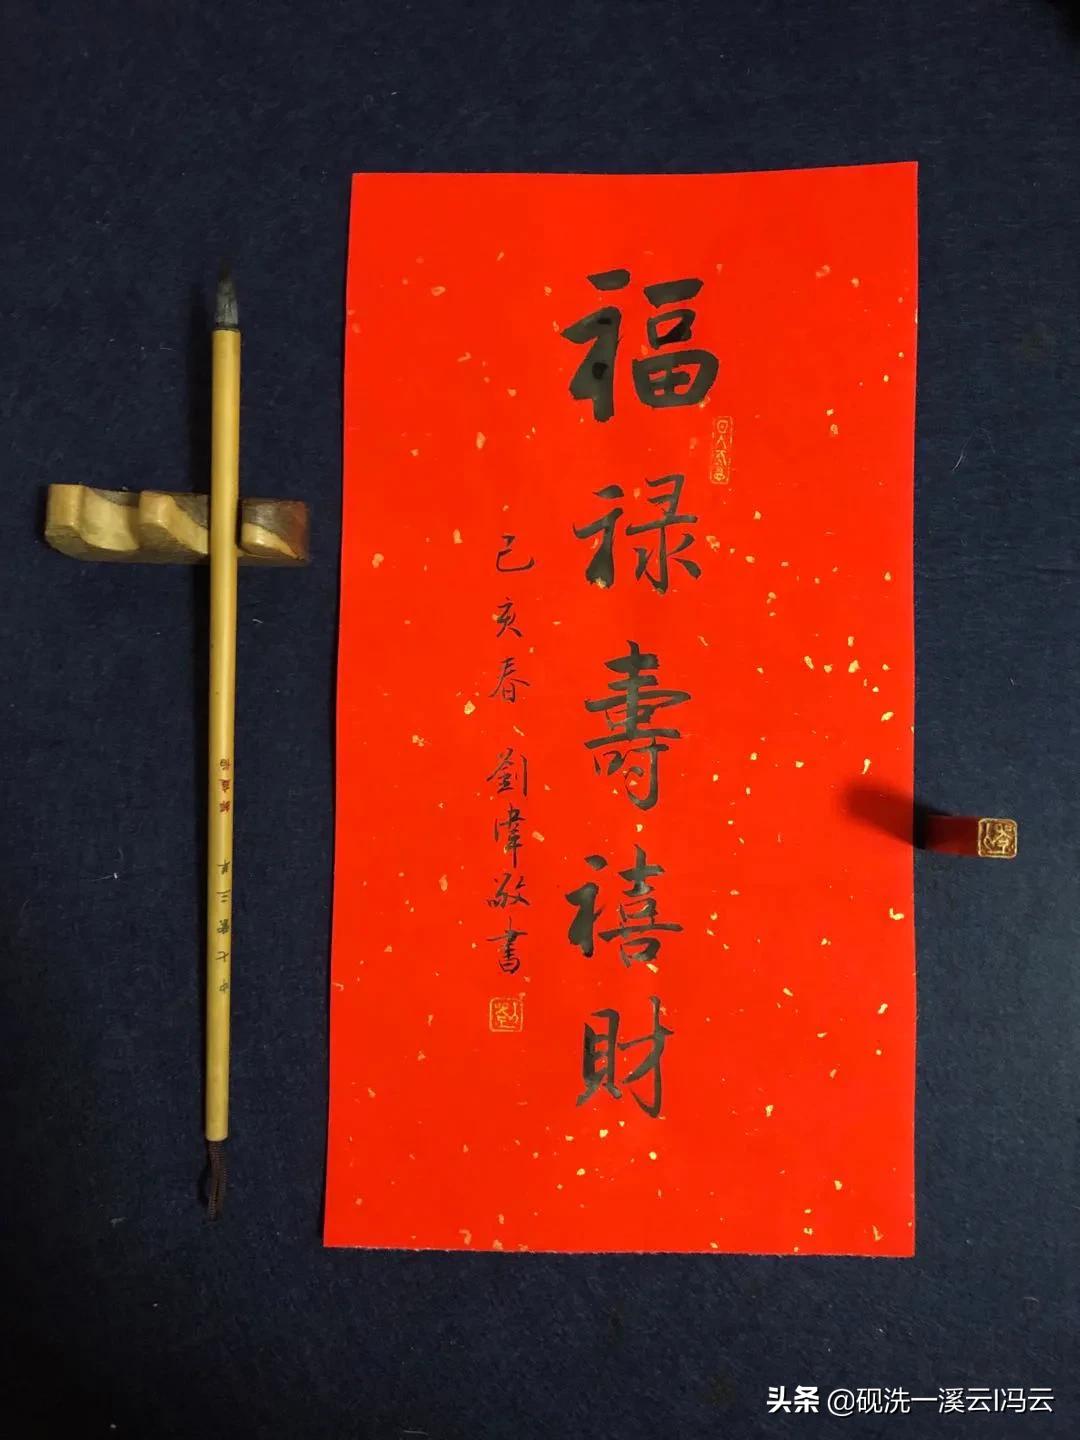 福禄壽禧財
己亥春 劉偉敬書
头条 @砚洗一溪云I冯云